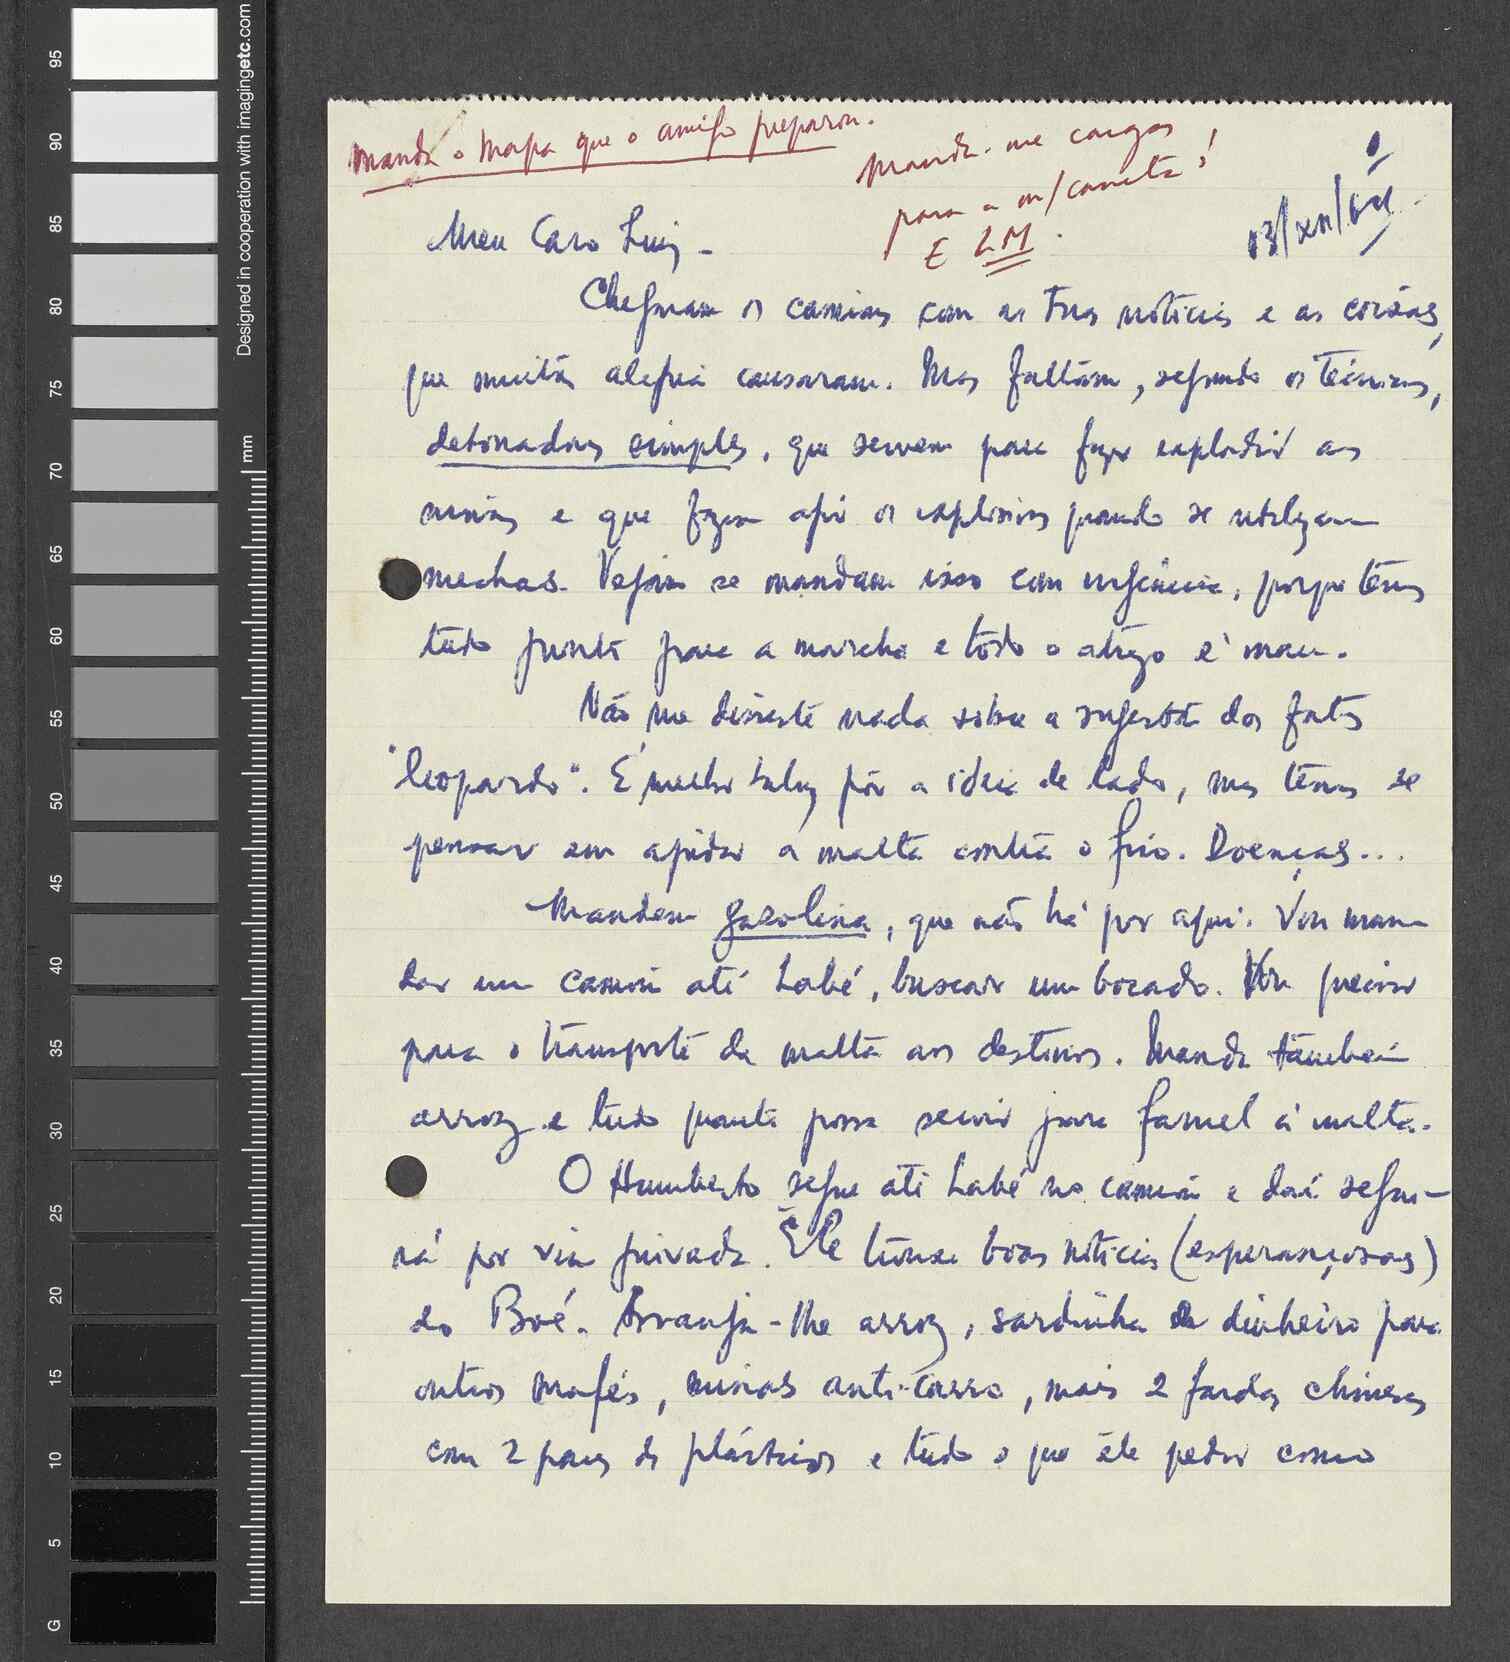 95
90
85
80
75
70
65
60
55
50
45
40
35
30
25
20
15
10
5
G
Designed in cooperation with imagingetc.com
mm
Manda o mapa que o amigo preparou.
Manda-me cargas
para a m/ caneta!
E LM.
13/XII/
Meu Caro Luiz -
Chegaram os camiões com as tuas notícias e as coisas,
que muita alegria causaram. Mas faltam, segundo os técnicos,
detonadores simples, que servem para fazer explodir as
minas e que fazem agir os explosivos quando se utilizam
mechas. Vejam se mandam isso com urgência, porque temos
tudo pronto para a marcha e todo o atrazo é mau.
Não me disseste nada sôbre a sugestão dos fatos
"leopardo". É melhor talvez pôr a ideia de lado, mas temos de
pensar em ajudar a malta contra o frio. Doenças...
Mandem gazolina, que não há por aqui. Vou man-
dar um camião até Labé, buscar um bocado. precisa
para o transporte da malta aos destinos. Manda também
arroz e tudo quanto possa servir para farnel à malta.
O Humberto segue até Labé no camião e daí segui-
rá por via privada. Êle trouxe boas notícias (esperançosas)
do Boé. Arranja-lhe arroz, sardinha e dinheiro para
outros mafés, minas anti-carro, mais 2 fardas chinesas
com 2 pares de plásticos e tudo o que êle pedir como